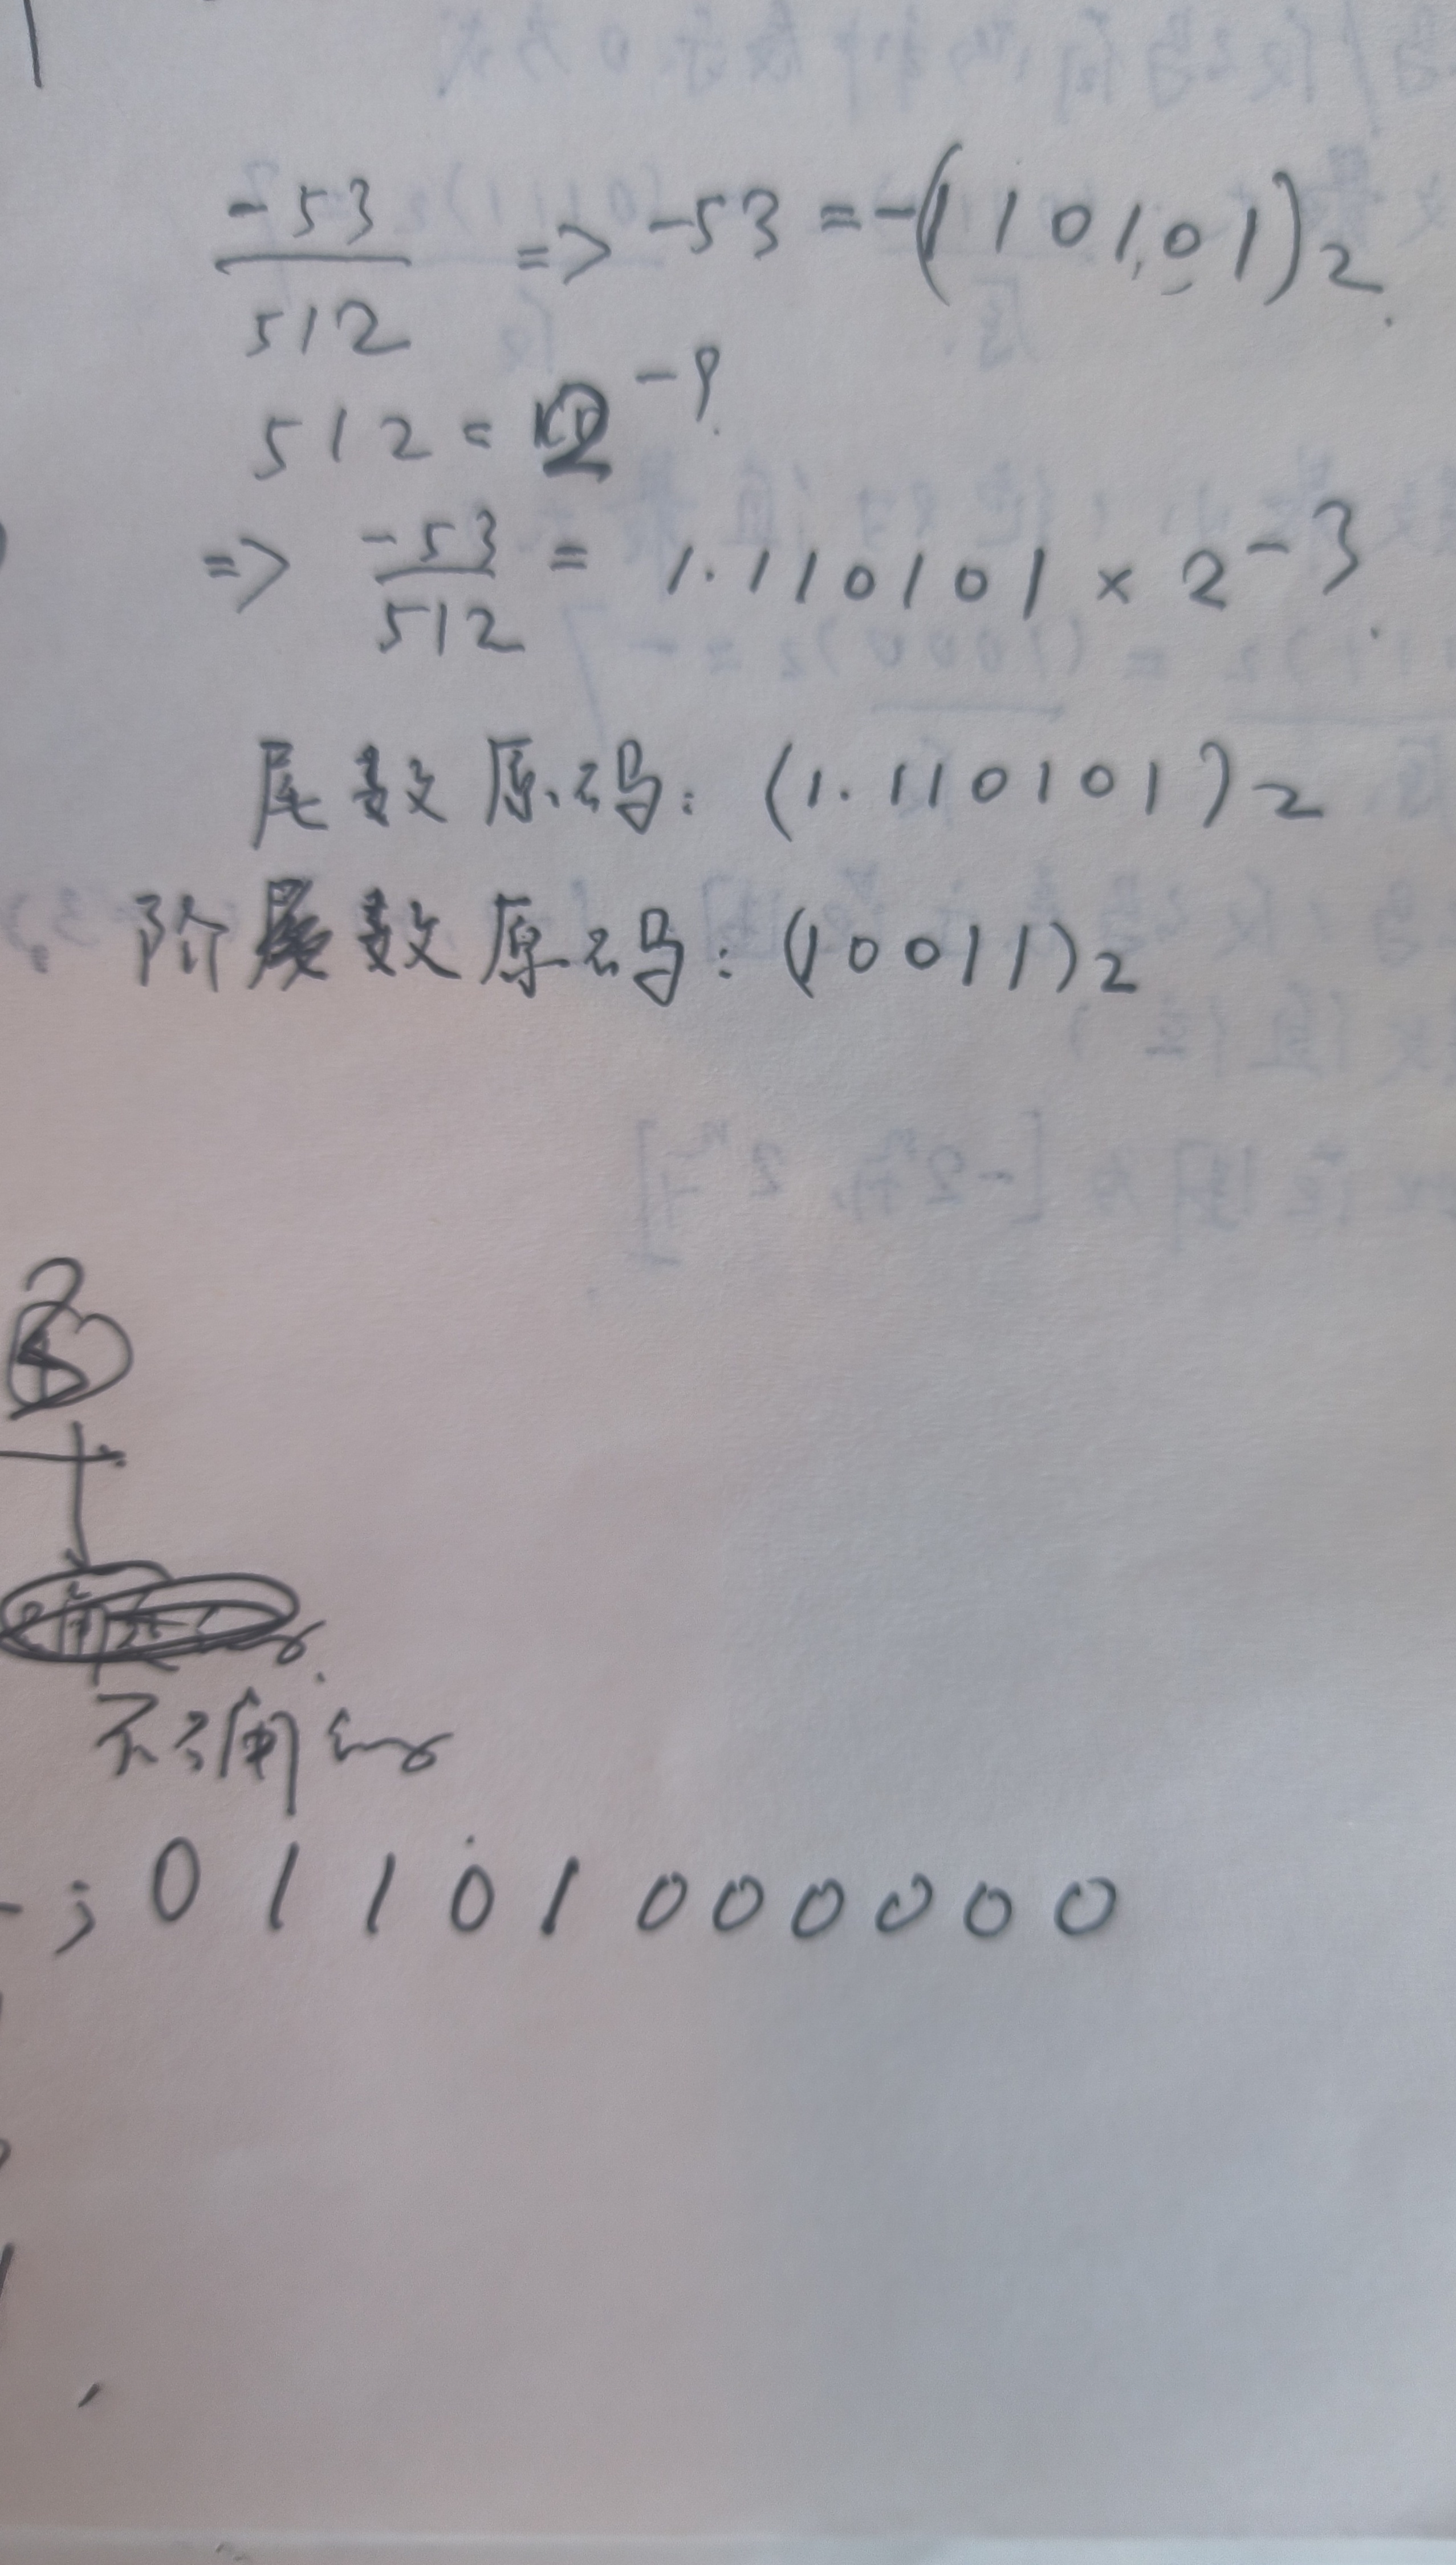 -53/512 => -53 = -(110101)2
512 = 2^-9
=> -53/512 = 1.110101 × 2^-3
尾数原码: (1.110101)2
阶数原码: (10011)2
; 01101000000